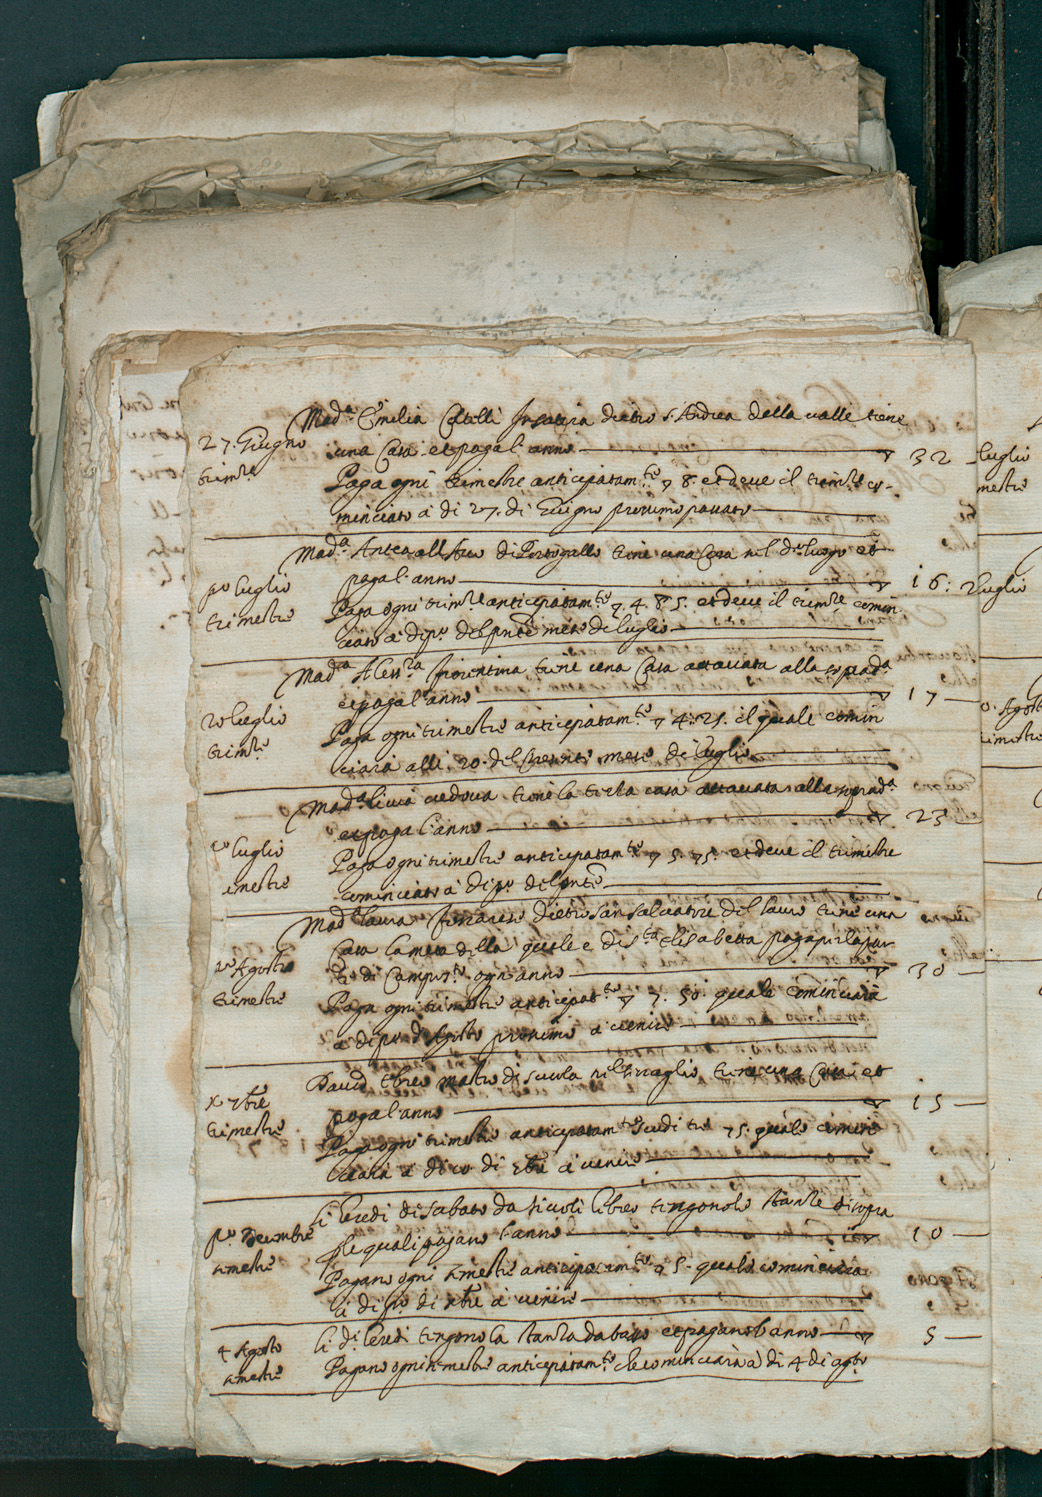 Mad.a Emilia Istalli dietro s. Andrea della valle tiene
27. Giugno
una Casa et paga l'anno 32
trim.re
Paga ogni trimestre anticipatam.te 8. et deve il trim.re co-
minciato à di 27. di Giugno prossimo passato
Mad.a Antea all Arco di Portogallo tiene una Casa nel d.o luogo et
p.o luglio
paga l'anno 16:
trimestre
Paga ogni trim.re anticipatam.te 4. 85. et deve il trim.re comin
ciato à di p.o del pnte mese di luglio
Mad.a Aless.ra fiorentina tiene una Casa attaccata alla soprad.a
20 luglio
et paga l'anno 17
trim.re
Paga ogni trimestre anticipatam.te 4: 25. il quale comin
ciarà alli 20. del presente mese di luglio
Mad.a livia vedova tiene la terza casa attaccata alla soprad.a
et paga l'anno 23
p.o luglio
Paga ogni trimestre anticipatam.te 5. 75. et deve il trimestre
imestre
cominciato à di p.o del pnte
Mad.a laura ferrarese dietro San Salvatore del lauro tiene una
Casa la metà della quale è di s.ta Elisabetta paga per la par
p.o Agosto
te di Campos.to ogni anno 30
trimestre
Paga ogni trimestre anticipat.te 7. 50. quale cominciarà
à di p.o d'Agosto prossimo à venire
David Ebreo mastro di scuola nel serraglio tiene una Casa et
X 7bre
paga l'anno 15
trimestre
Paga ogni trimestre anticipatam.te Scudi tre 75. quale comin
ciarà à di X di 7bre à venire
li heredi di Sabato da Ricvoli Ebreo tengono le stanze di sopra
p.o Decembre
le quali pagano l'anno 10
emestre
Pagano ogni semestre anticipatam.te 5. quale cominciara
à di p.o di Xbre à venire
4 Agosto
li d.i heredi tengono la stanza da basso et pagano l'anno 5
semestre
Pagano ogni semestre anticipatam.te che cominciarà à di 4 di ag.to
luglio
mestre
2 luglio
o. Agosto
imestre